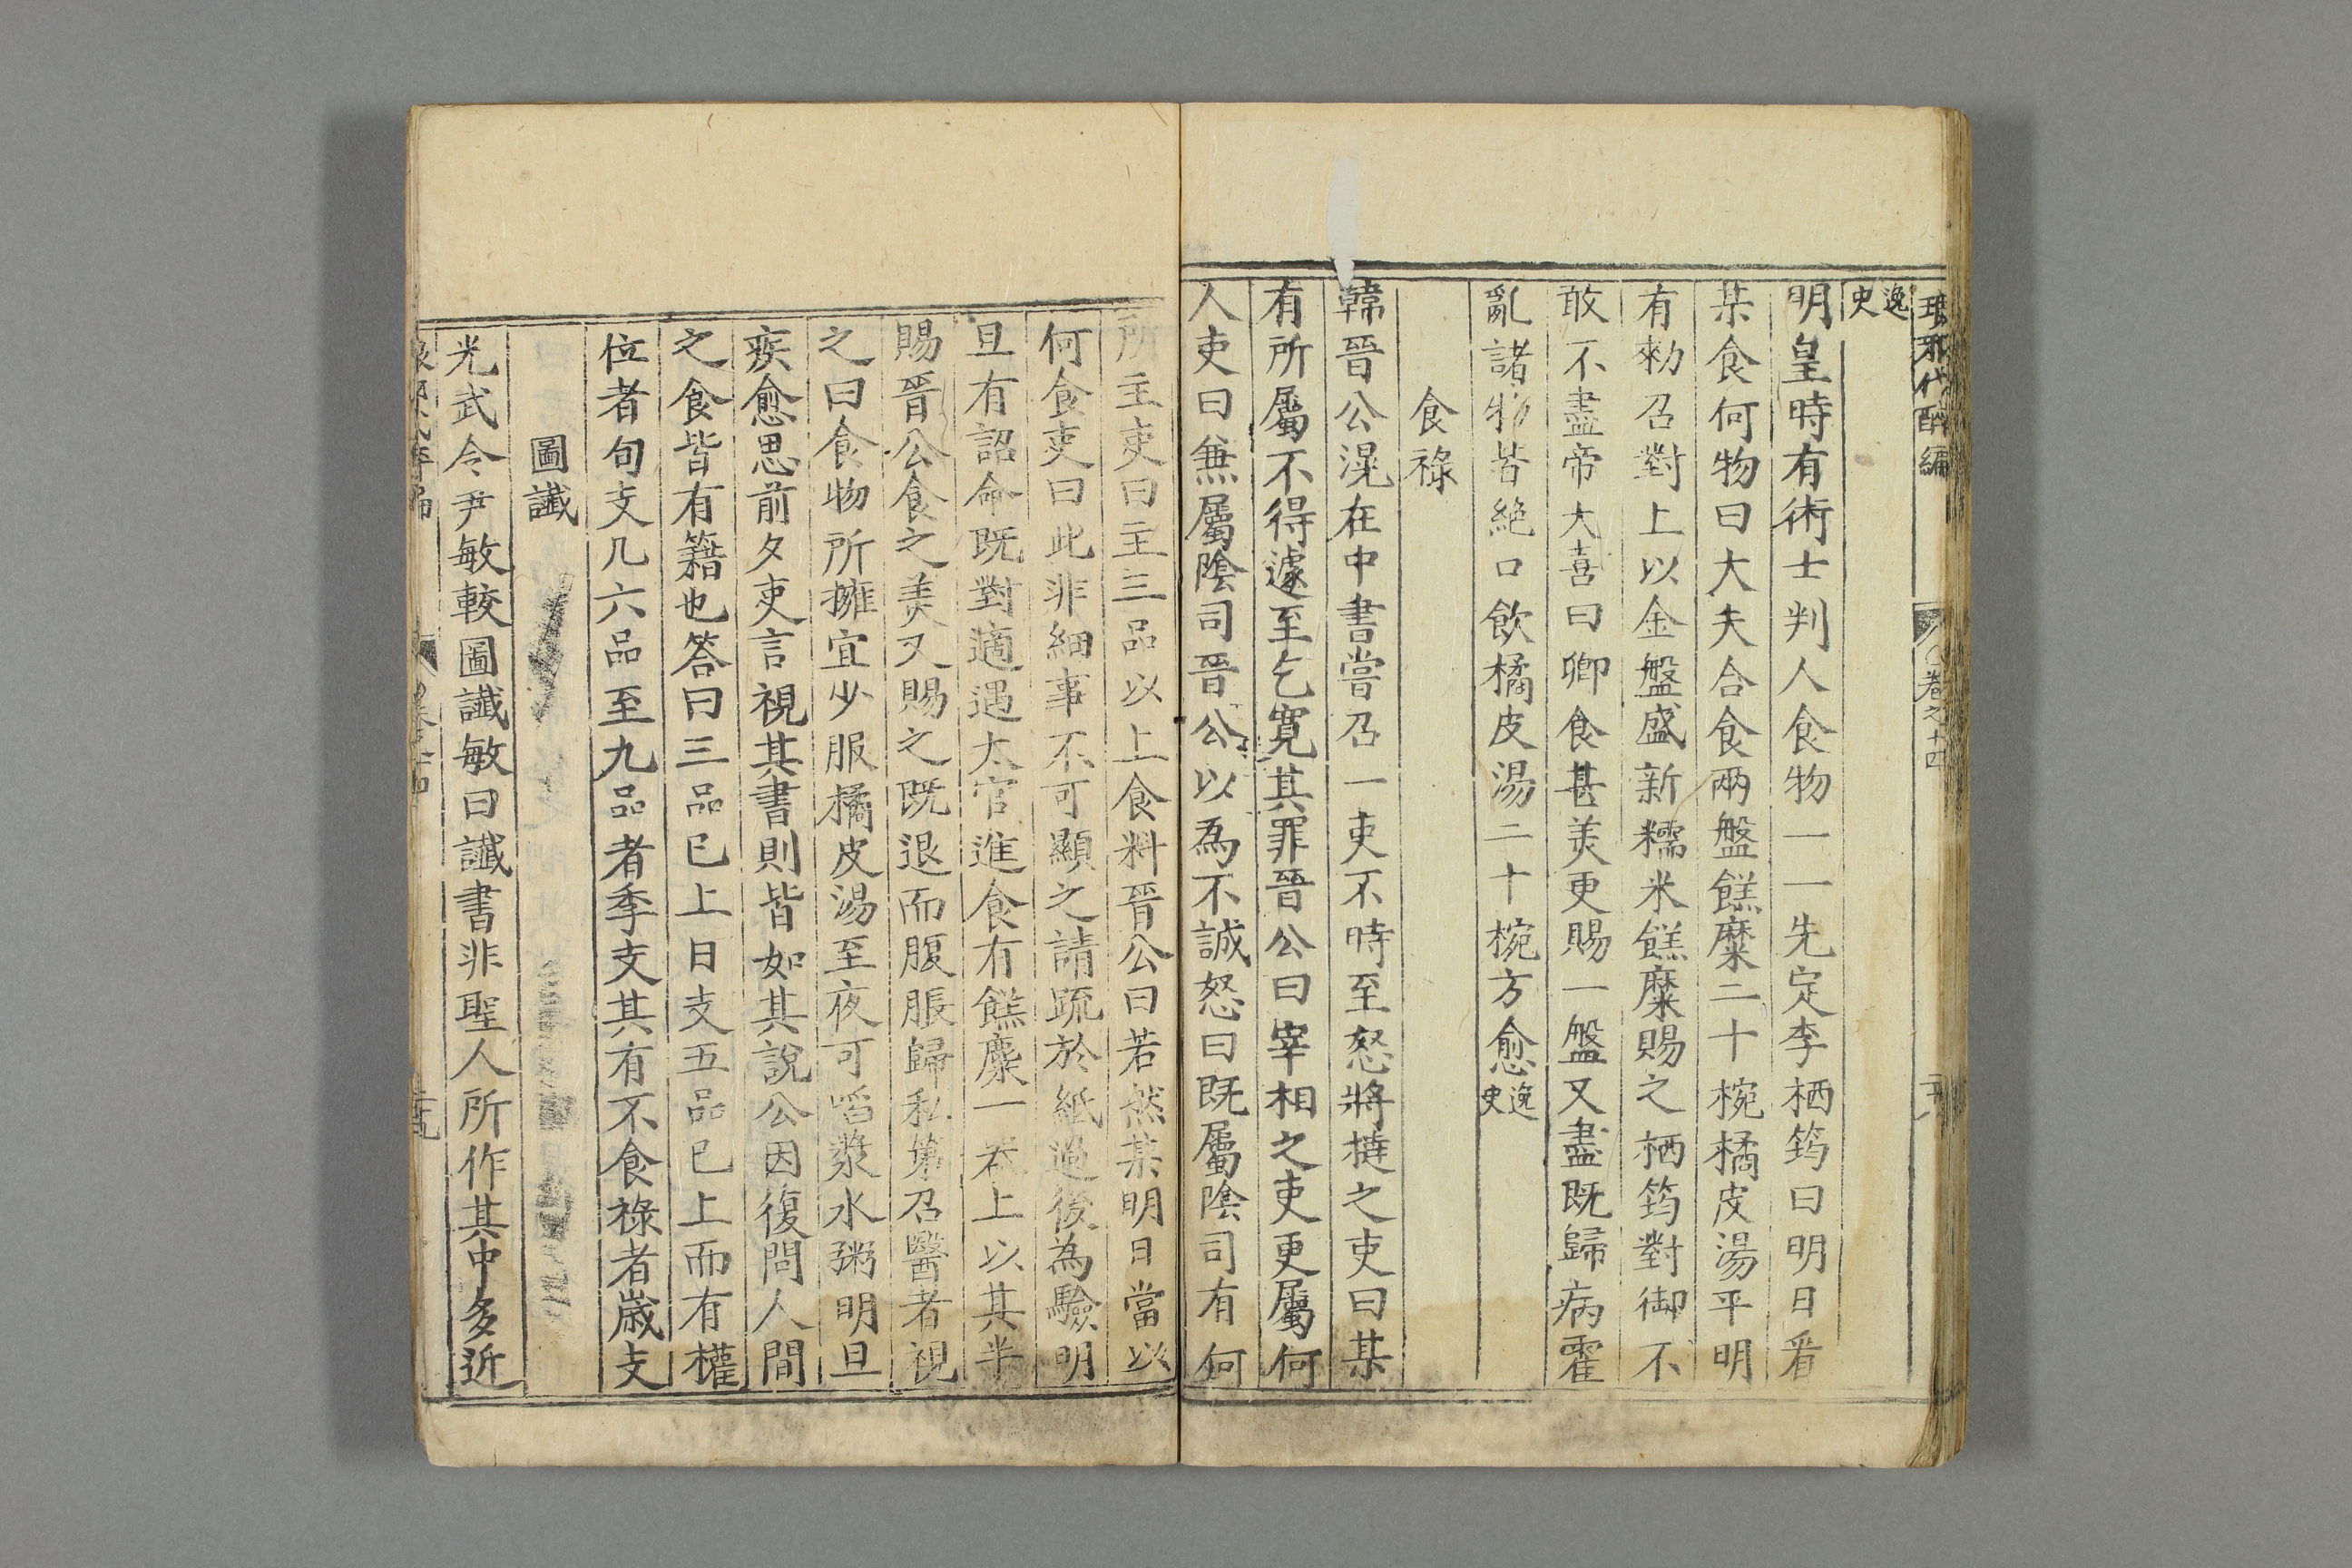 琅邪代醉編 卷之十四
逸史
明皇時有術士判人食物一一先定李栖筠曰明日看
某食何物曰大夫合食兩盤餻糜二十椀橘皮湯平明
有勑召對上以金盤盛新糯米餻糜賜之栖筠對御不
敢不盡帝大喜曰卿食甚羙更賜一盤又盡既歸病霍
亂諸物皆絶口飲橘皮湯二十椀方愈逸史
食祿
韓晉公滉在中書嘗召一吏不時至怒將撻之吏曰某
有所屬不得遽至乞寛其罪晉公曰宰相之吏更屬何
人吏曰兼屬陰司晉公以為不誠怒曰既屬陰司有何
所主吏曰主三品以上食料晉公曰若然某明日當以
何食吏曰此非細事不可顯之請疏於紙過後為驗明
旦有詔命既對適遇太官進食有餻麋一器上以其半
賜晉公食之羙又賜之既退而腹脹歸私第召醫者視
之曰食物所擁宜少服橘皮湯至夜可啗漿水粥明旦
疾愈思前夕吏言視其書則皆如其說公因復問人間
之食皆有籍也答曰三品已上日支五品已上而有權
位者旬支凡六品至九品者季支其有不食祿者歲支
圖讖
光武令尹敏較圖讖敏曰讖書非聖人所作其中多近